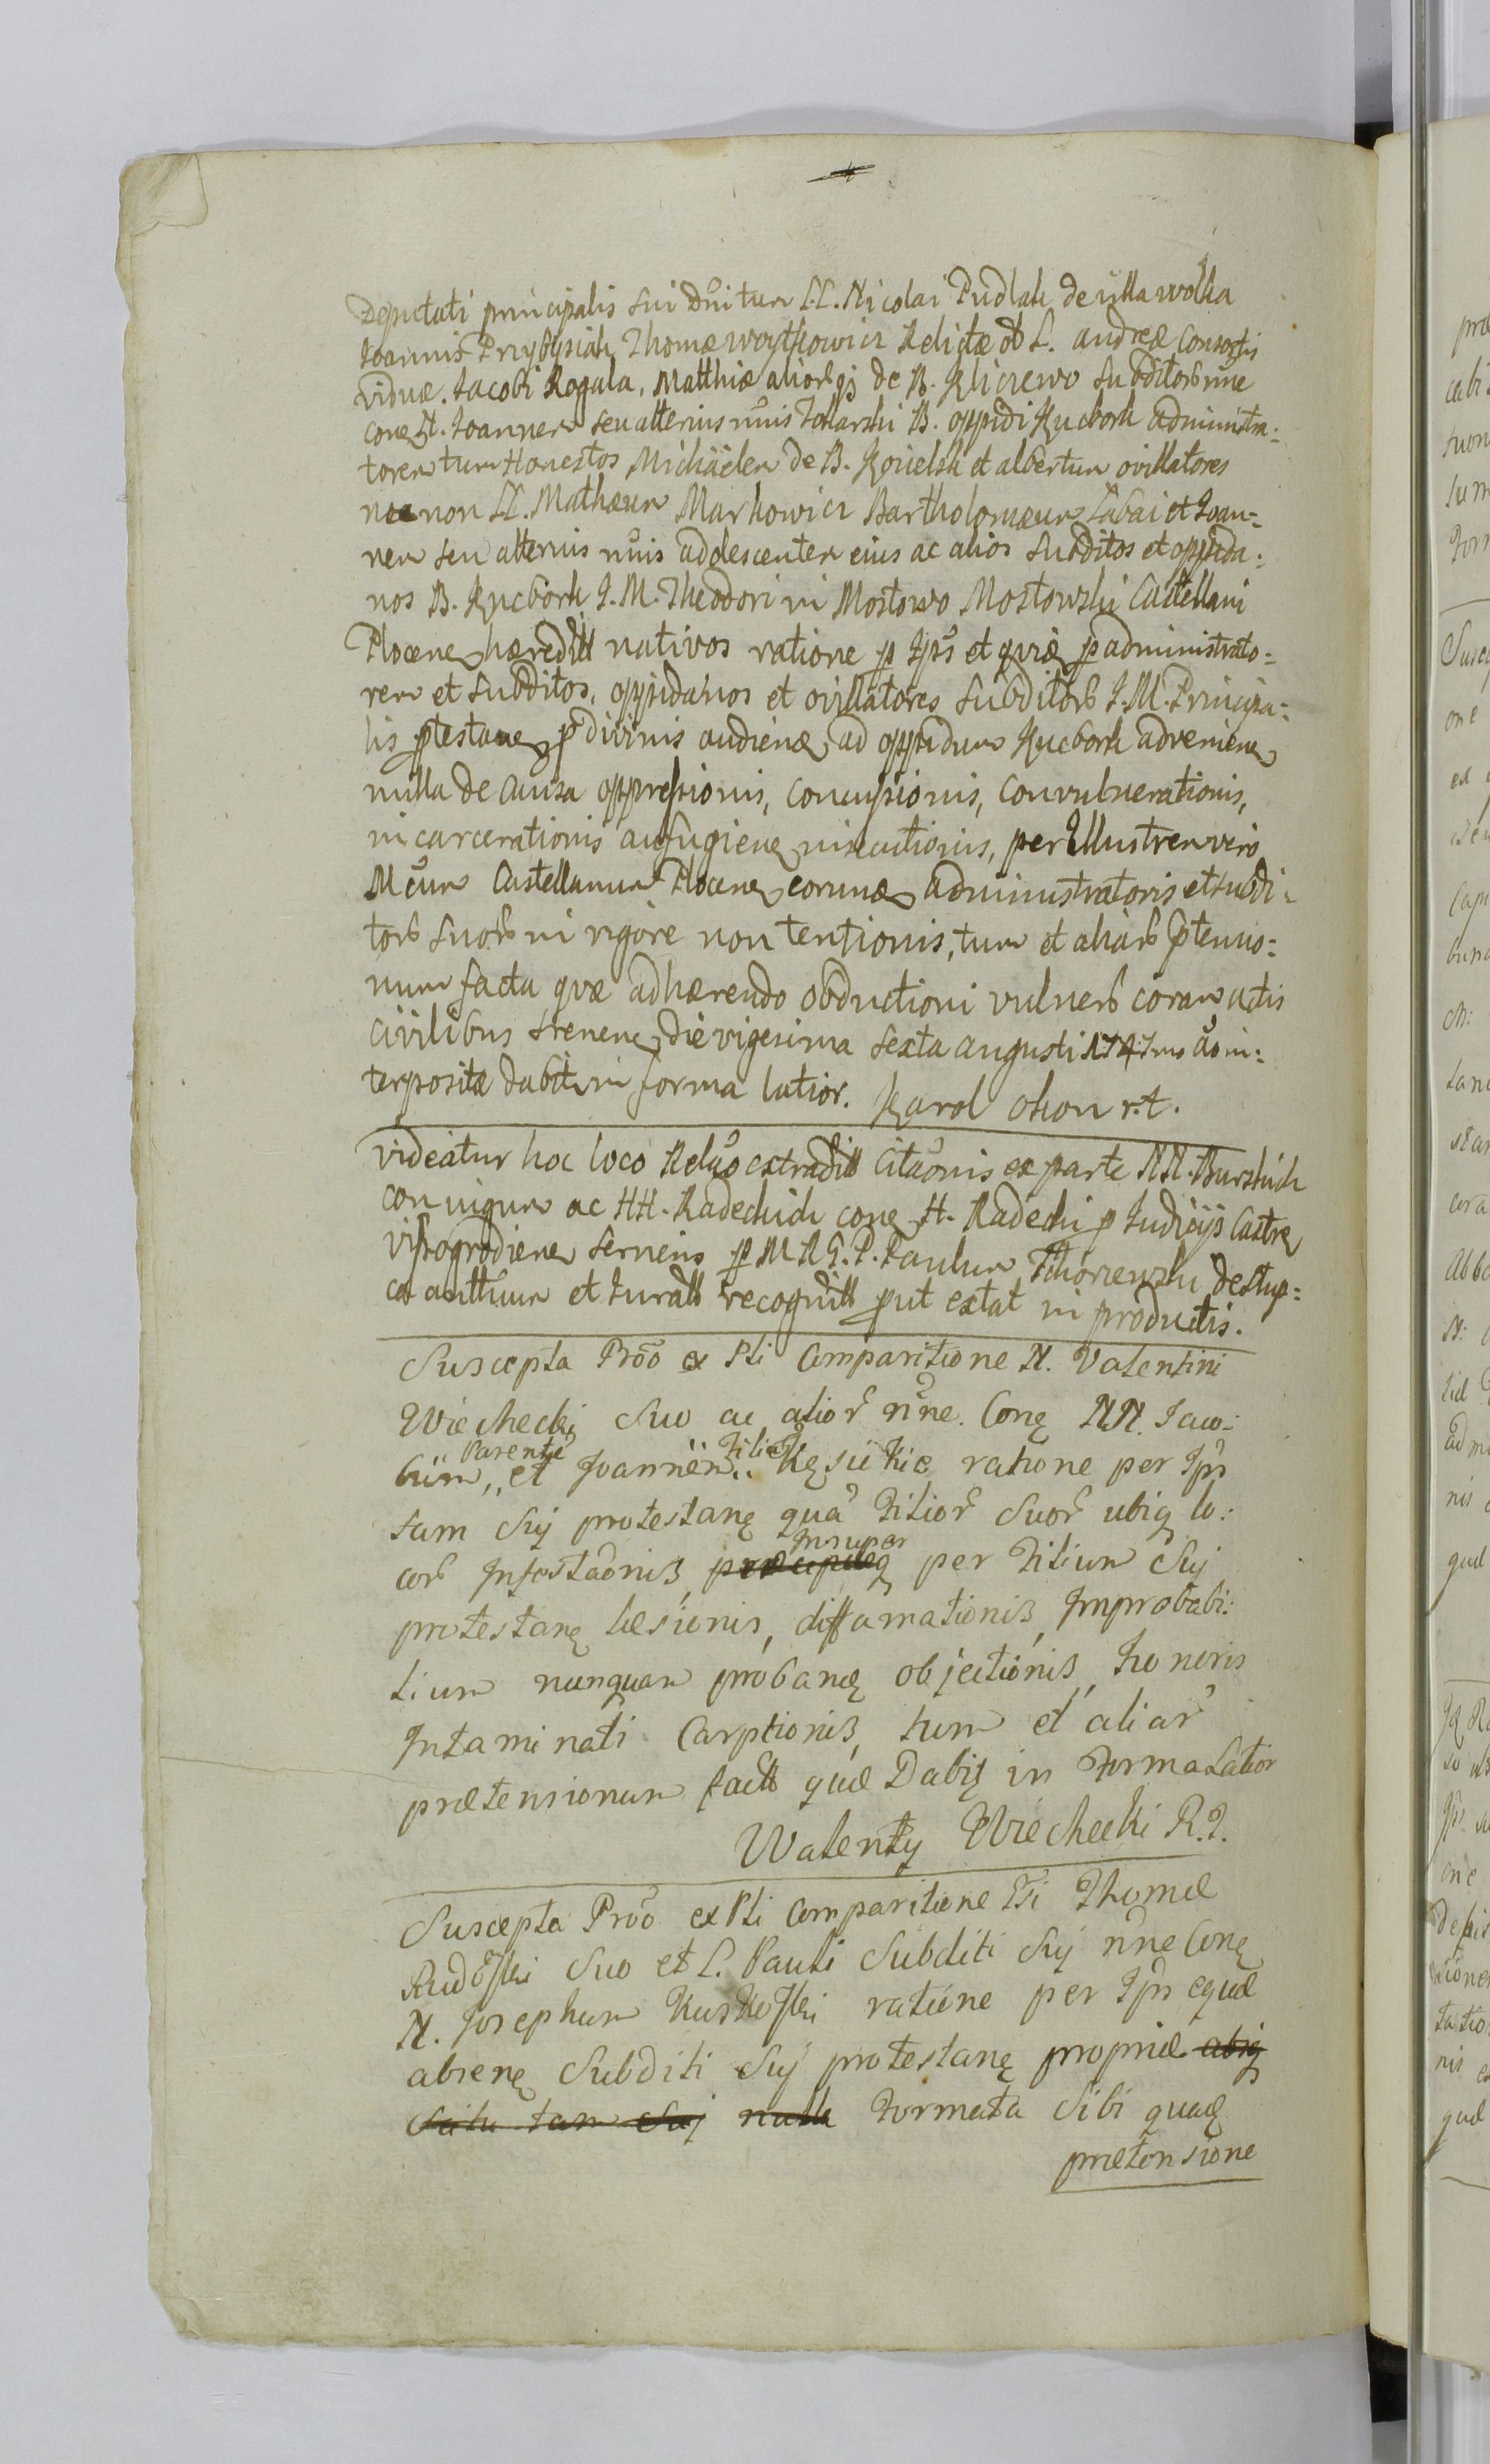 Deputati principalis sui Dni tum LL. Nicolai Pudlak de villa wolka
Joannis Przybysiak Thomæ woytkowicz Relictæ ol L. andreæ Consortis
viduæ. Jacobi Rogula, Matthiæ aliorqȝ de B. Kliczewo Subditor nne
con N. Joannem seu alterius nnis Tokarski B. oppidi Kucbork administra:
torem tum Honestos Michäelem de B. Kozielsk et albertum ovillatores
nec non LL. Mathæum Markowicz Bartholomæum Łabai et Joan=
nem seu alterius nnis adolescentem eius ac alios Subditos et oppida:
nos B. Kucbork I. M. Theodori in Mostowo Mostowski Castellani
Plocen hæredit nativos ratione p Ips et quia p administrato=
rem et Subditos, oppidanos et ovillatores Subditor I. M. Principa:
lis ptestan p divinis audien ad oppidum Kucbork advenien
nulla de causa oppressionis, concussionis, convulnerationis,
incarcerationis aufugien insecutionis, per Illustrem vero
Mcum Castellanum Plocen eorund administratoris et subdi:
tor suor in rigore non tentionis, tum et aliar ptensio:
num facta quæ adhærendo obductioni vulner coram actis
civilibus Srenen die vigesima sexta augusti 1747mo ao in:
terpositæ dabit in forma latior. Karol okon r.t.
videatur hoc loco Relao extradit Citaonis ex parte NN. Burskich
conuigum ac HH. Radeckich con H. Radecki p Judicijs Castren
vissogrodien serviens p M R G. P. Paulum Tchorzewski de stup:
ca autthum et Jurat recognit put extat in productis.
Suscepta Prõo ex Pli Comparitione N. Valentini
Wiechecki Suo ac alior nne. Conę NN. Jaco:
büm Parentē et Joannem Filiū Kęsickie ratione per Ips
tam Sui protestanę quā Filior Suor ubiq lo:
cor Infestaonis præcipueq Insuper per Filium Sui
protestanę læsionis, diffamationis, Improbabi:
lium nunquam probandę objectionis, honoris
Intaminati Carptionis, tum et aliar
prætensionum fact quæ Dabit in Forma Latior
Walenty Wiechecki R.T.
Suscepta Prõo ex Pli Comparitione Gsi Thomæ
Rudoski Suo et L. Pauli Subditi Sui nne Conę
N. Josephum Kuskoski ratione per Ips equæ
absenę Subditi Sui protestanę propriæ abiq
Scitu tam Sui nulla Formata Sibi quaq
prætensione